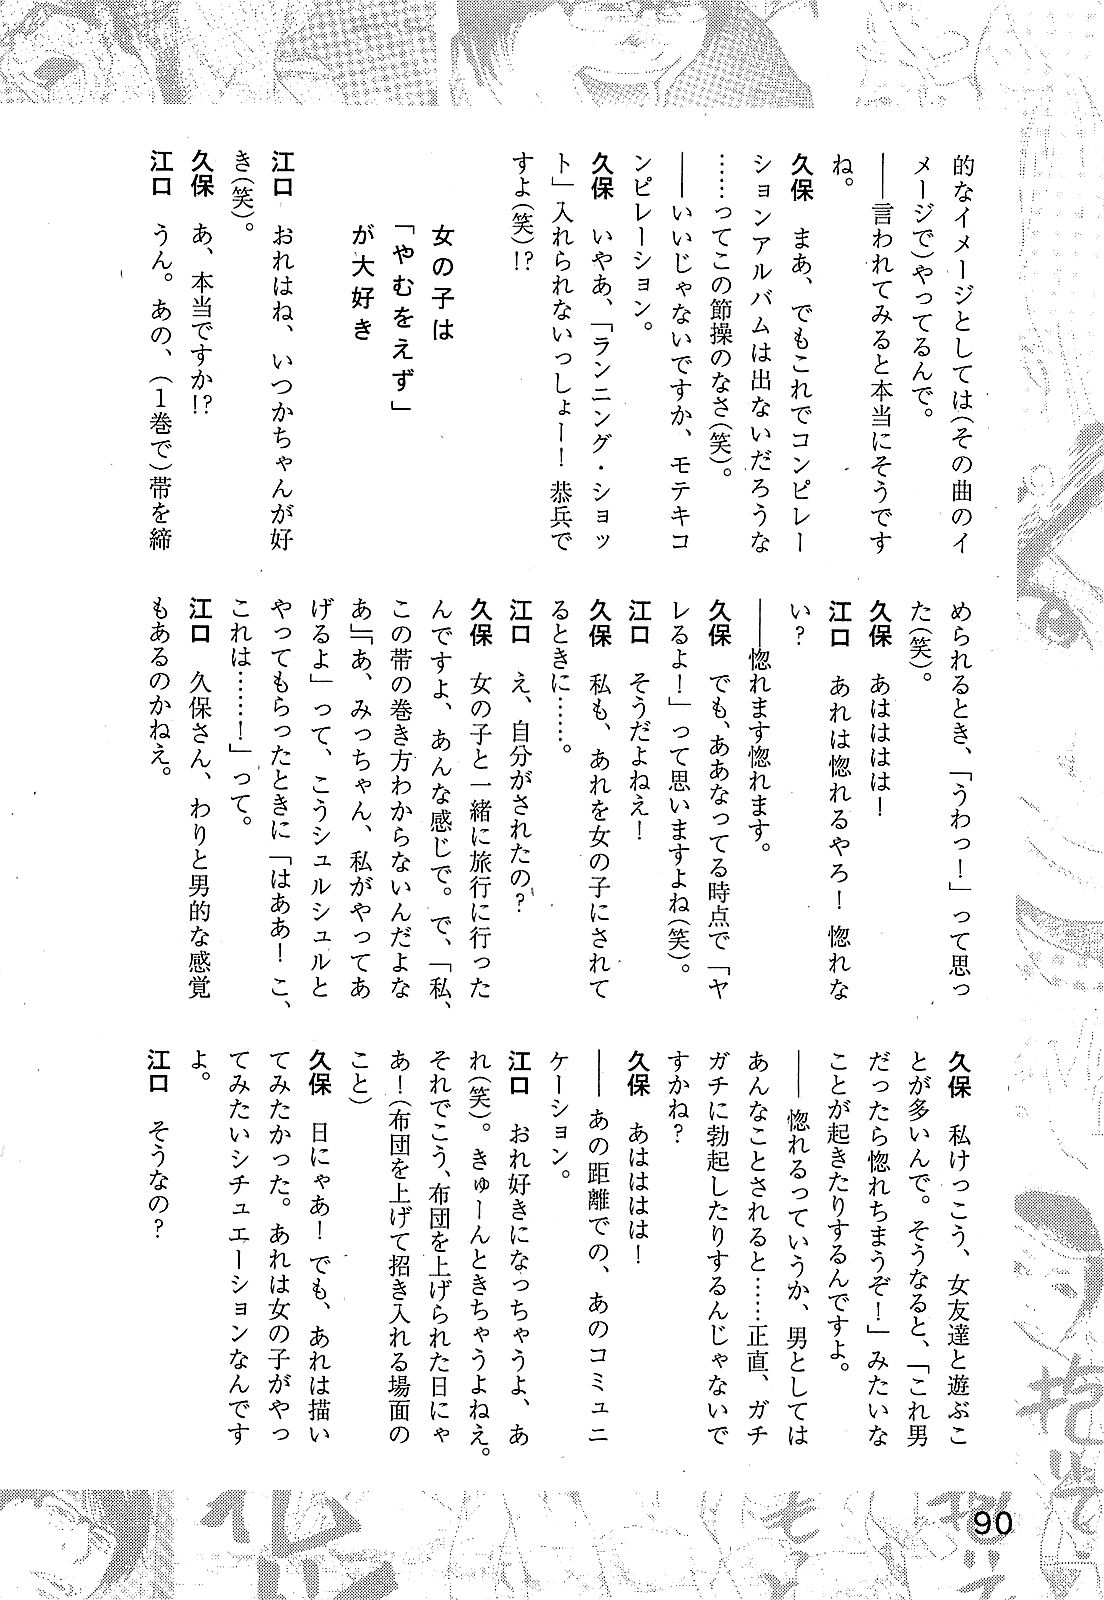 的なイメージとしては(その曲のイ
メージで)やってるんで。
――言われてみると本当にそうです
ね。
久保　まあ、でもこれでコンピレー
ションアルバムは出ないだろうな
……ってこの節操のなさ(笑)。
――いいじゃないですか、モテキコ
ンピレーション。
久保　いやあ、「ランニング・ショッ
ト」入れられないっしょー！ 恭兵で
すよ(笑)!?
女の子は
「やむをえず」
が大好き
江口　おれはね、いつかちゃんが好
き(笑)。
久保　あ、本当ですか!?
江口　うん。あの、(1巻で)帯を締
められるとき、「うわっ！」って思っ
た(笑)。
久保　あはははは！
江口　あれは惚れるやろ！ 惚れな
い？
――惚れます惚れます。
久保　でも、ああなってる時点で「ヤ
レるよ！」って思いますよね(笑)。
江口　そうだよねえ！
久保　私も、あれを女の子にされて
るときに……。
江口　え、自分がされたの？
久保　女の子と一緒に旅行に行った
んですよ、あんな感じで。で、「私、
この帯の巻き方わからないんだよな
あ」「あ、みっちゃん、私がやってあ
げるよ」って、こうシュルシュルと
やってもらったときに「はああ！ こ、
これは……！」って。
江口　久保さん、わりと男的な感覚
もあるのかねえ。
久保　私けっこう、女友達と遊ぶこ
とが多いんで。そうなると、「これ男
だったら惚れちまうぞ！」みたいな
ことが起きたりするんですよ。
――惚れるっていうか、男としては
あんなことされると……正直、ガチ
ガチに勃起したりするんじゃないで
すかね？
久保　あはははは！
――あの距離での、あのコミュニ
ケーション。
江口　おれ好きになっちゃうよ、あ
れ(笑)。きゅーんときちゃうよねえ。
それでこう、布団を上げられた日にゃ
あ！(布団を上げて招き入れる場面の
こと)
久保　日にゃあ！ でも、あれは描い
てみたかった。あれは女の子がやっ
てみたいシチュエーションなんです
よ。
江口　そうなの？
90